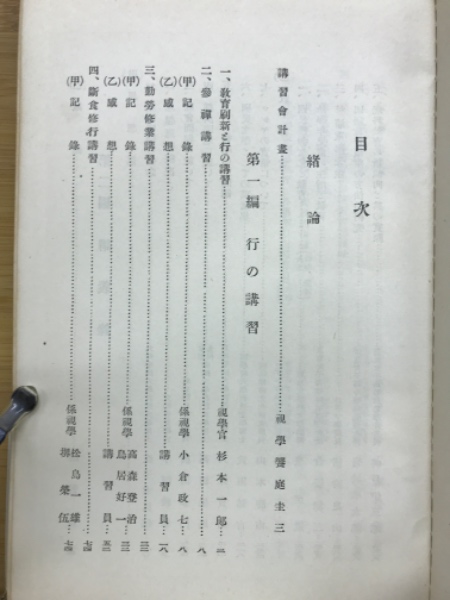 目次
緒論
講習會計畫……視學 饗庭圭三
第一編 行の講習
一、教育刷新と行の講習……視學官 杉本一郎…二
二、參禪講習……八
(甲)記錄……係視學 小倉政七…八
(乙)感想……講習員…一八
三、勤勞修養講習……三三
(甲)記錄……係視學 高森登治 鳥居好一…三三
(乙)感想……講習員
四、斷食修行講習……
(甲)記錄……係視學 松島一雄 榮伍